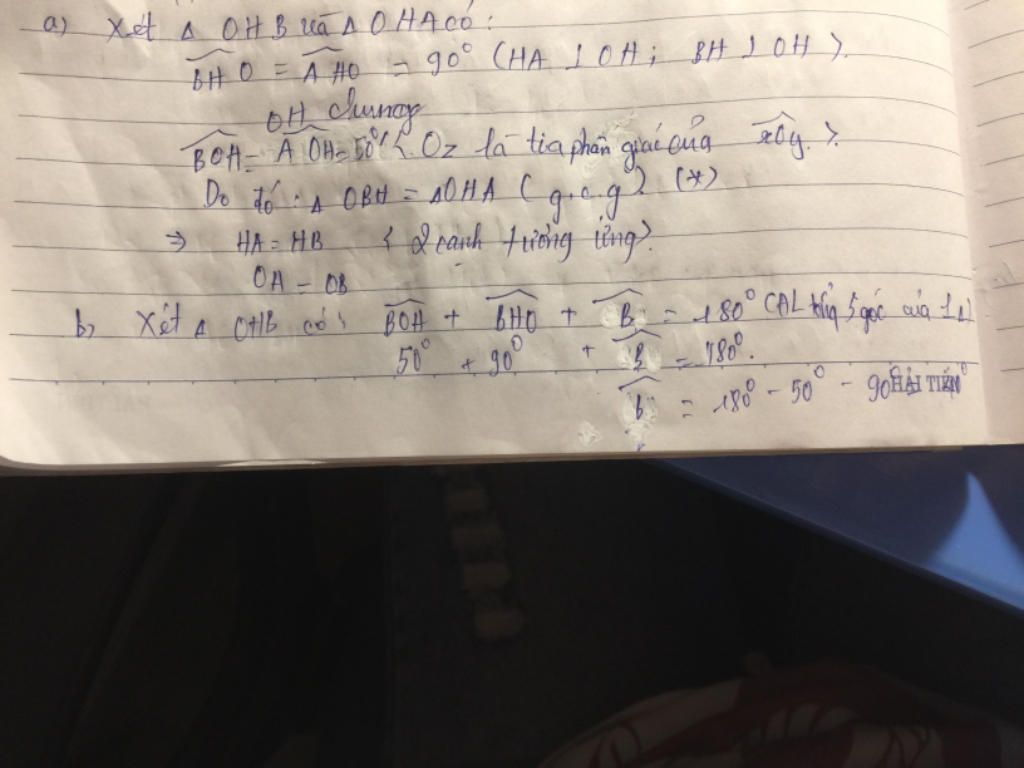 a) Xét Δ OHB và Δ OHA có:
BHO = AHO = 90° (HA ⊥ OH; BH ⊥ OH).
OH chung
BOH = AOH = 50° (Oz là tia phân giác của xOy).
Do đó: Δ OBH = Δ OHA (g.c.g) (*)
⇒ HA = HB (2 cạnh tương ứng).
OA = OB
b) Xét Δ OHB có: BOH + BHO + B = 180° (ĐL tổng 3 góc của 1 Δ)
50° + 90° + B = 180°.
B = 180° - 50° - 90°
HẢI TIẾN